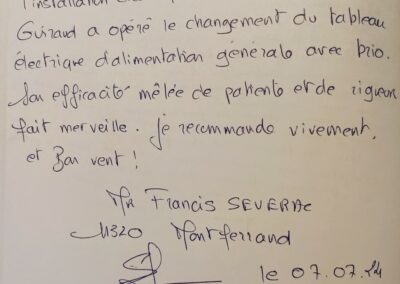 l'installation
Guiraud a opéré le changement du tableau
électrique d'alimentation générale avec brio.
Son efficacité mêlée de patiente et de rigueur
fait merveille. Je recommande vivement,
et Bon vent !
Mr Francis SEVERAC
11320 Montferrand
le 07.07.24